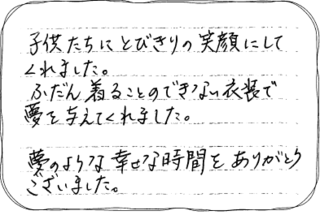 子供たちにとびきりの笑顔にして
くれました。
ふだん着ることのできない衣装で
夢を与えてくれました。
夢のような幸せな時間をありがとう
ございました。